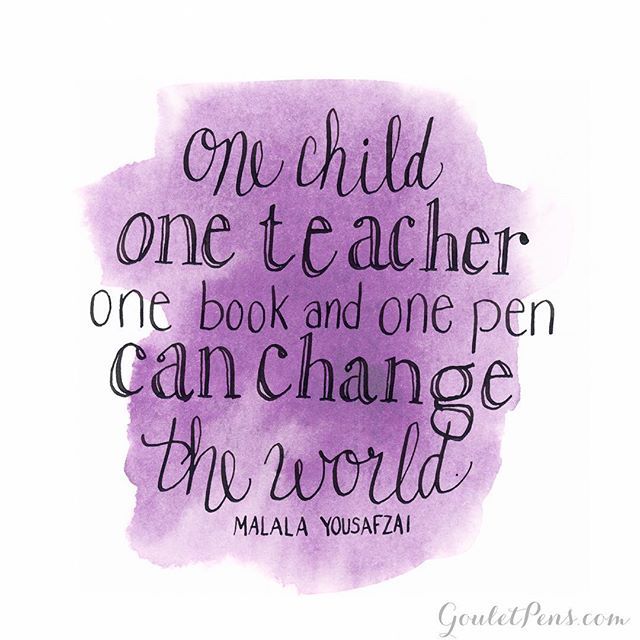 one child
one teacher
one book and one pen
can change
the world.
MALALA YOUSAFZAI
GouletPens.com